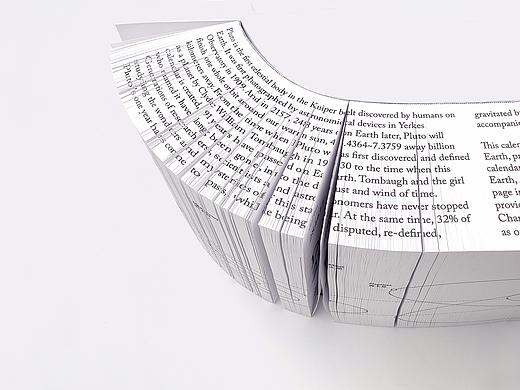 Pluto is the first celestial body in the Kuiper belt discovered by humans on
Earth. It was first photographed by astronomical devices in Yerkes
Observatory in 1909. And in 2157, 248 years on Earth later, Pluto will
finish one whole orbit around our warm sun, 4.4364–7.3759 away billion
kilometers away. From the time when Pluto was first discovered and defined
as a planet by Clyde William Tombaugh in 1930 to the time when this
calendar is created, 91 years have passed on Earth. Tombaugh and the girl
who named it have been gone into the dust and wind of time.
Generations of research astronomers have never stopped
studying the wonders and mysteries of this star. At the same time, 32% of
Pluto's one year has come to pass, while being disputed, re-defined,
gravitated b
accompanie
This cale
Earth, p
calenda
Earth,
page i
provi
Char
as o